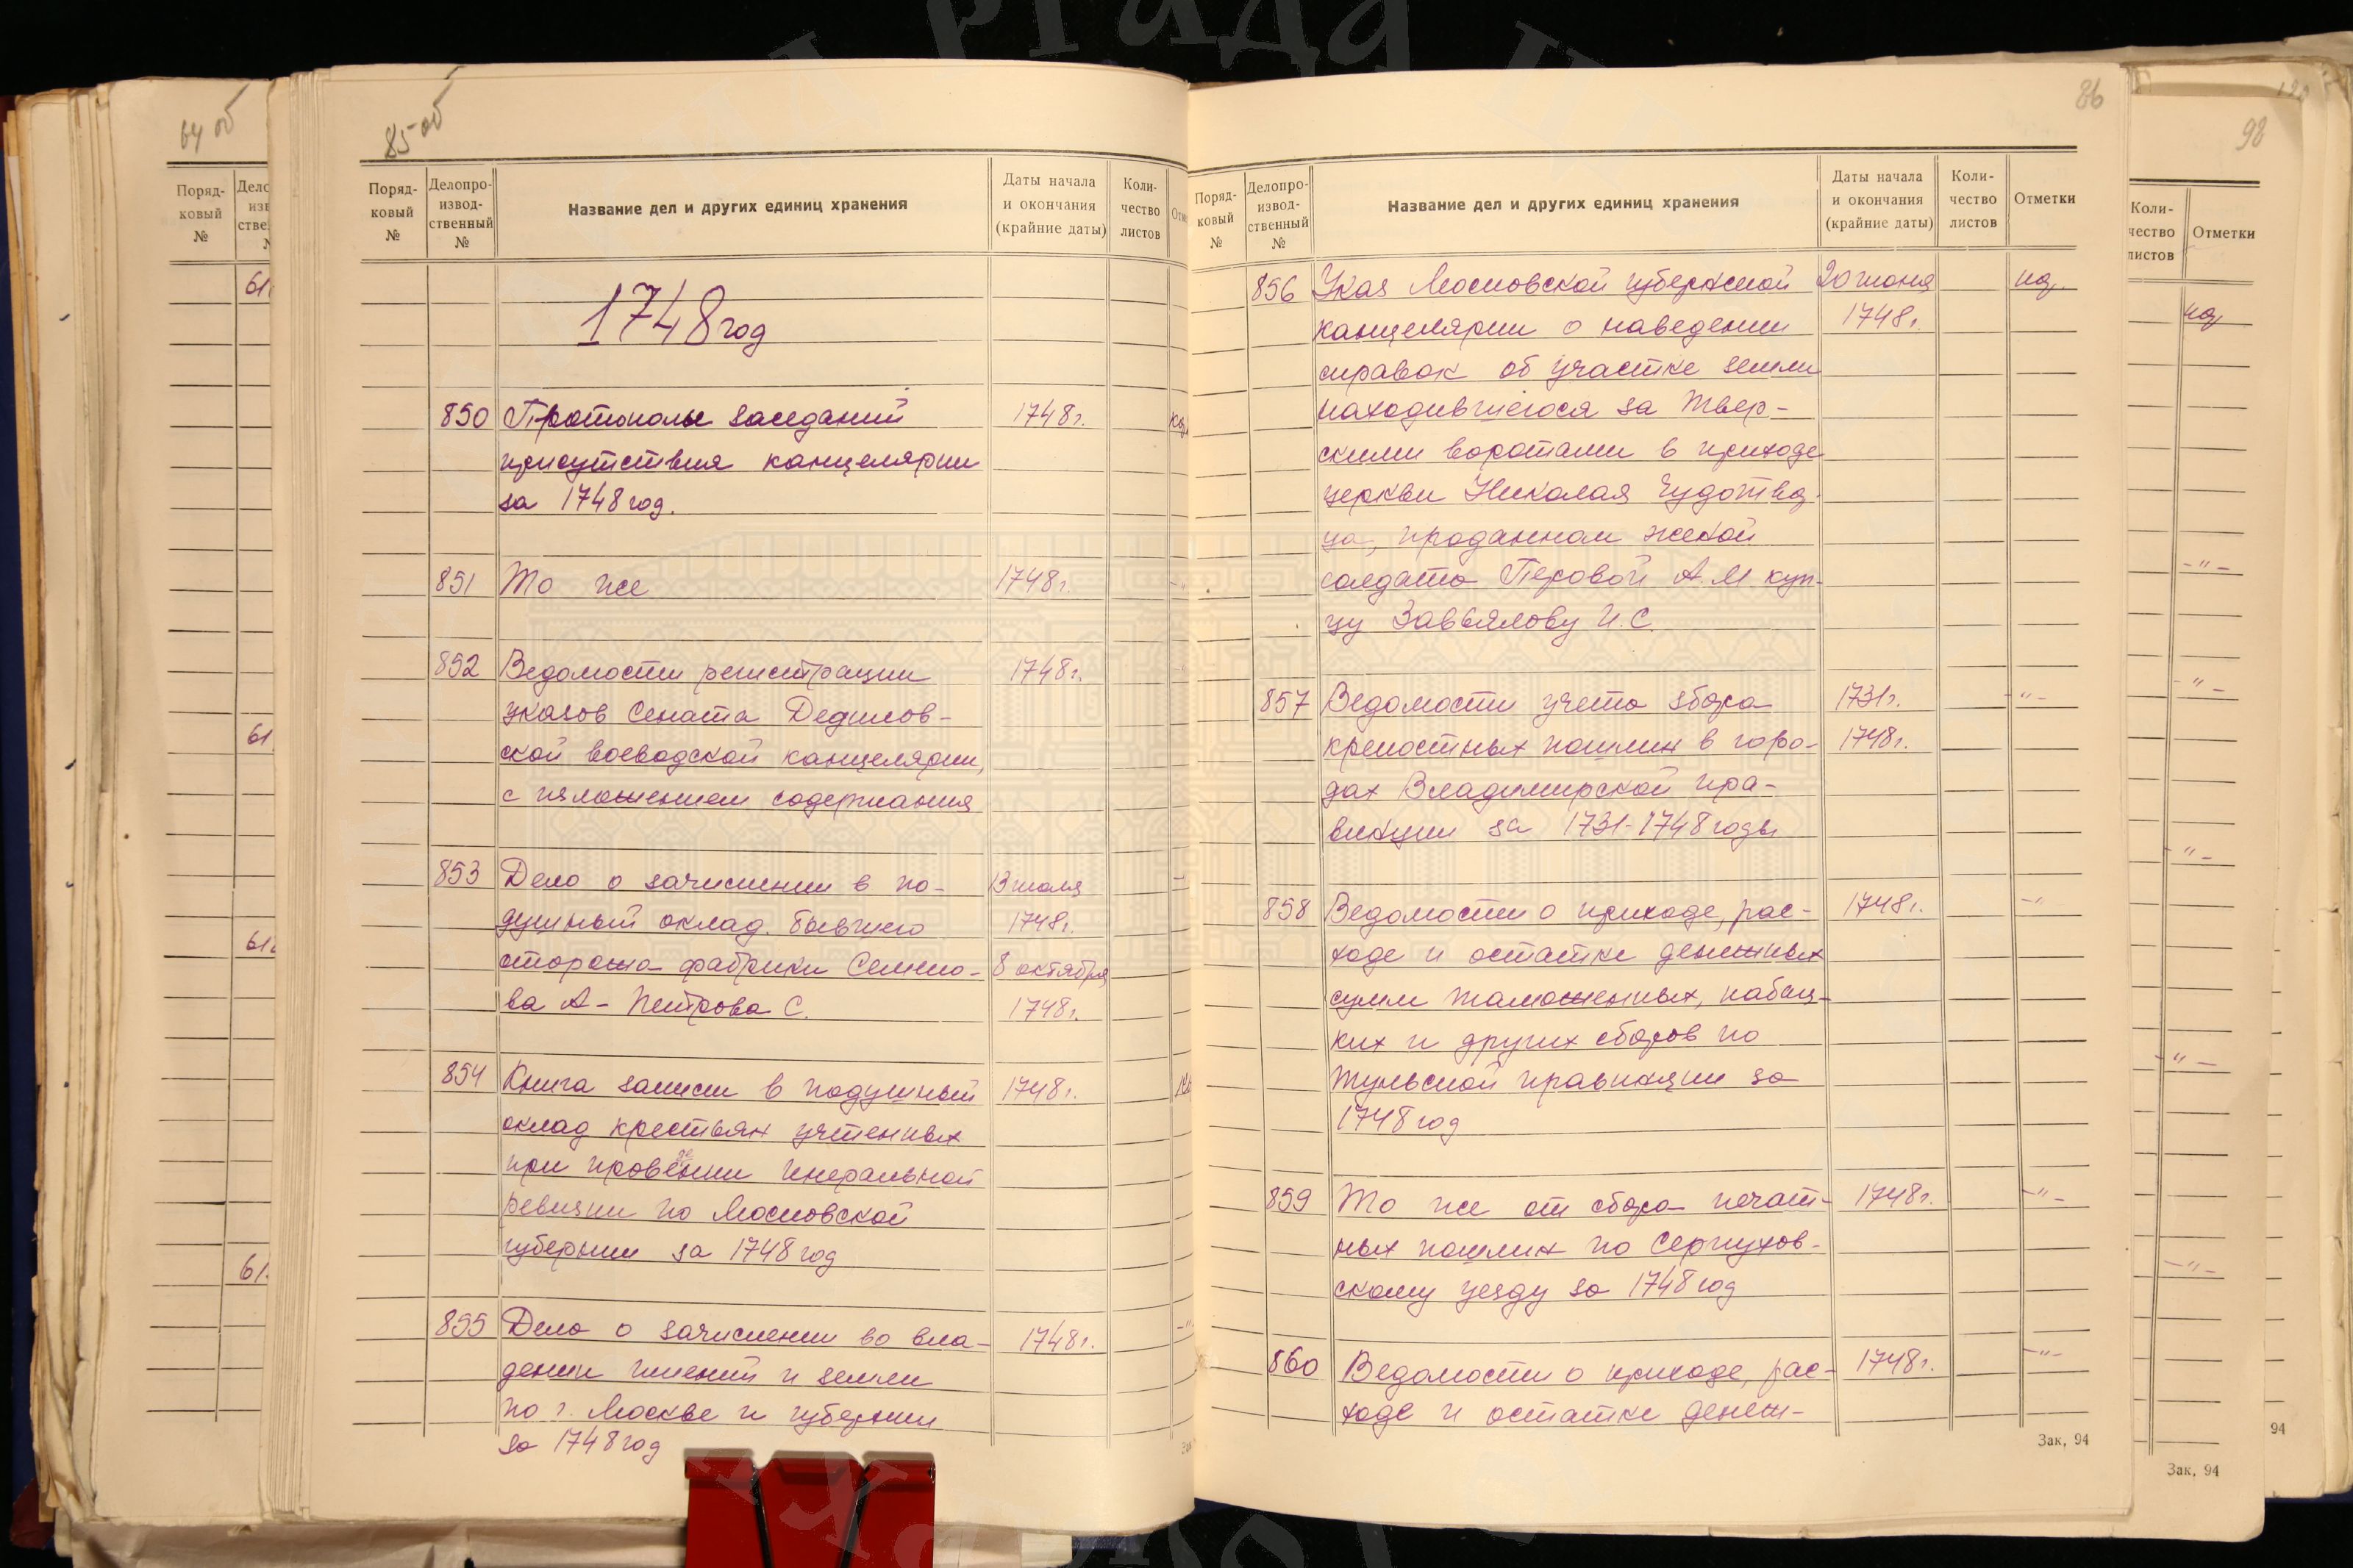 64 об
Поряд-
ковый
№
85 об
Поряд-
ковый
№
Делопро-
извод-
ственный
№
Название дел и других единиц хранения
Даты начала
и окончания
(крайние даты)
Коли-
чество
листов
1748 год
850 Протоколы заседаний 1748 г.
присутствия канцелярии
за 1748 год.
851 То же 1748 г.
852 Ведомости регистрации 1748 г.
указов Сената Дедилов-
ской воеводской канцелярии,
с изложением содержания
853 Дело о зачислении в по- 13 июля
душный оклад. бывшего 1748 г.
сторожа фабрики Семено- 8 октября
ва А - Петрова С. 1748 г.
854 Книга записи в подушный 1748 г.
оклад крестьян учтенных
при проведении генеральной
ревизии по Московской
губернии за 1748 год
855 Дело о зачислении во вла- 1748 г.
дении имений и земли
по г. Москве и губернии
за 1748 год
86
Поряд-
ковый
№
Делопро-
извод-
ственный
№
Название дел и других единиц хранения
Даты начала
и окончания
(крайние даты)
Коли-
чество
листов
Отметки
856 Указ Московской губернской 20 июня
канцелярии о наведении 1748 г.
справок об участке земли
находившегося за Твер-
скими воротами в приходе
церкви Николая Чудотвор-
ца, проданном женой
солдата Перовой А.М. куп-
цу Завьялову И.С.
857 Ведомости учета сбора 1731 г. -"-
крепостных пошлин в горо- 1748 г.
дах Владимирской про-
винции за 1731-1748 годы
858 Ведомости о приходе, рас- 1748 г. -"-
ходе и остатке денежных
сумм таможенных, кабац-
ких и других сборов по
Тульской провинции за
1748 год
859 То же от сбора печат- 1748 г. -"-
ных пошлин по Серпухов-
скому уезду за 1748 год
860 Ведомости о приходе, рас- 1748 г. -"-
ходе и остатке денеж-
Зак. 94
98
Коли-
чество
листов
Отметки
-"-
-"-
-"-
-"-
-"-
Зак. 94
94